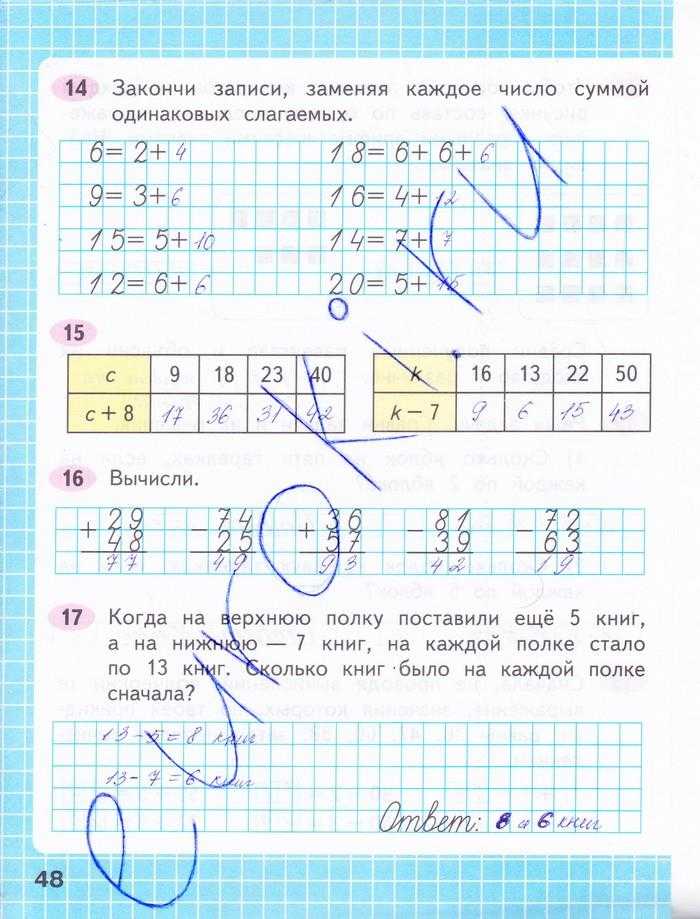 14 Закончи записи, заменяя каждое число суммой
одинаковых слагаемых.
6= 2+ 4 18= 6+ 6+ 6
9= 3+ 6 16= 4+ 12
15= 5+ 10 14= 7+ 7
12= 6+ 6 20= 5+ 15
15
c 9 18 23 40 k 16 13 22 50
c + 8 17 36 31 42 k − 7 9 6 15 43
16 Вычисли.
+ 29 − 74 + 36 − 81 − 72
48 25 57 39 63
77 49 93 42 19
17 Когда на верхнюю полку поставили ещё 5 книг,
а на нижнюю — 7 книг, на каждой полке стало
по 13 книг. Сколько книг было на каждой полке
сначала?
13 − 5 = 8 книг
13 − 7 = 6 книг
Ответ: 8 и 6 книг
48